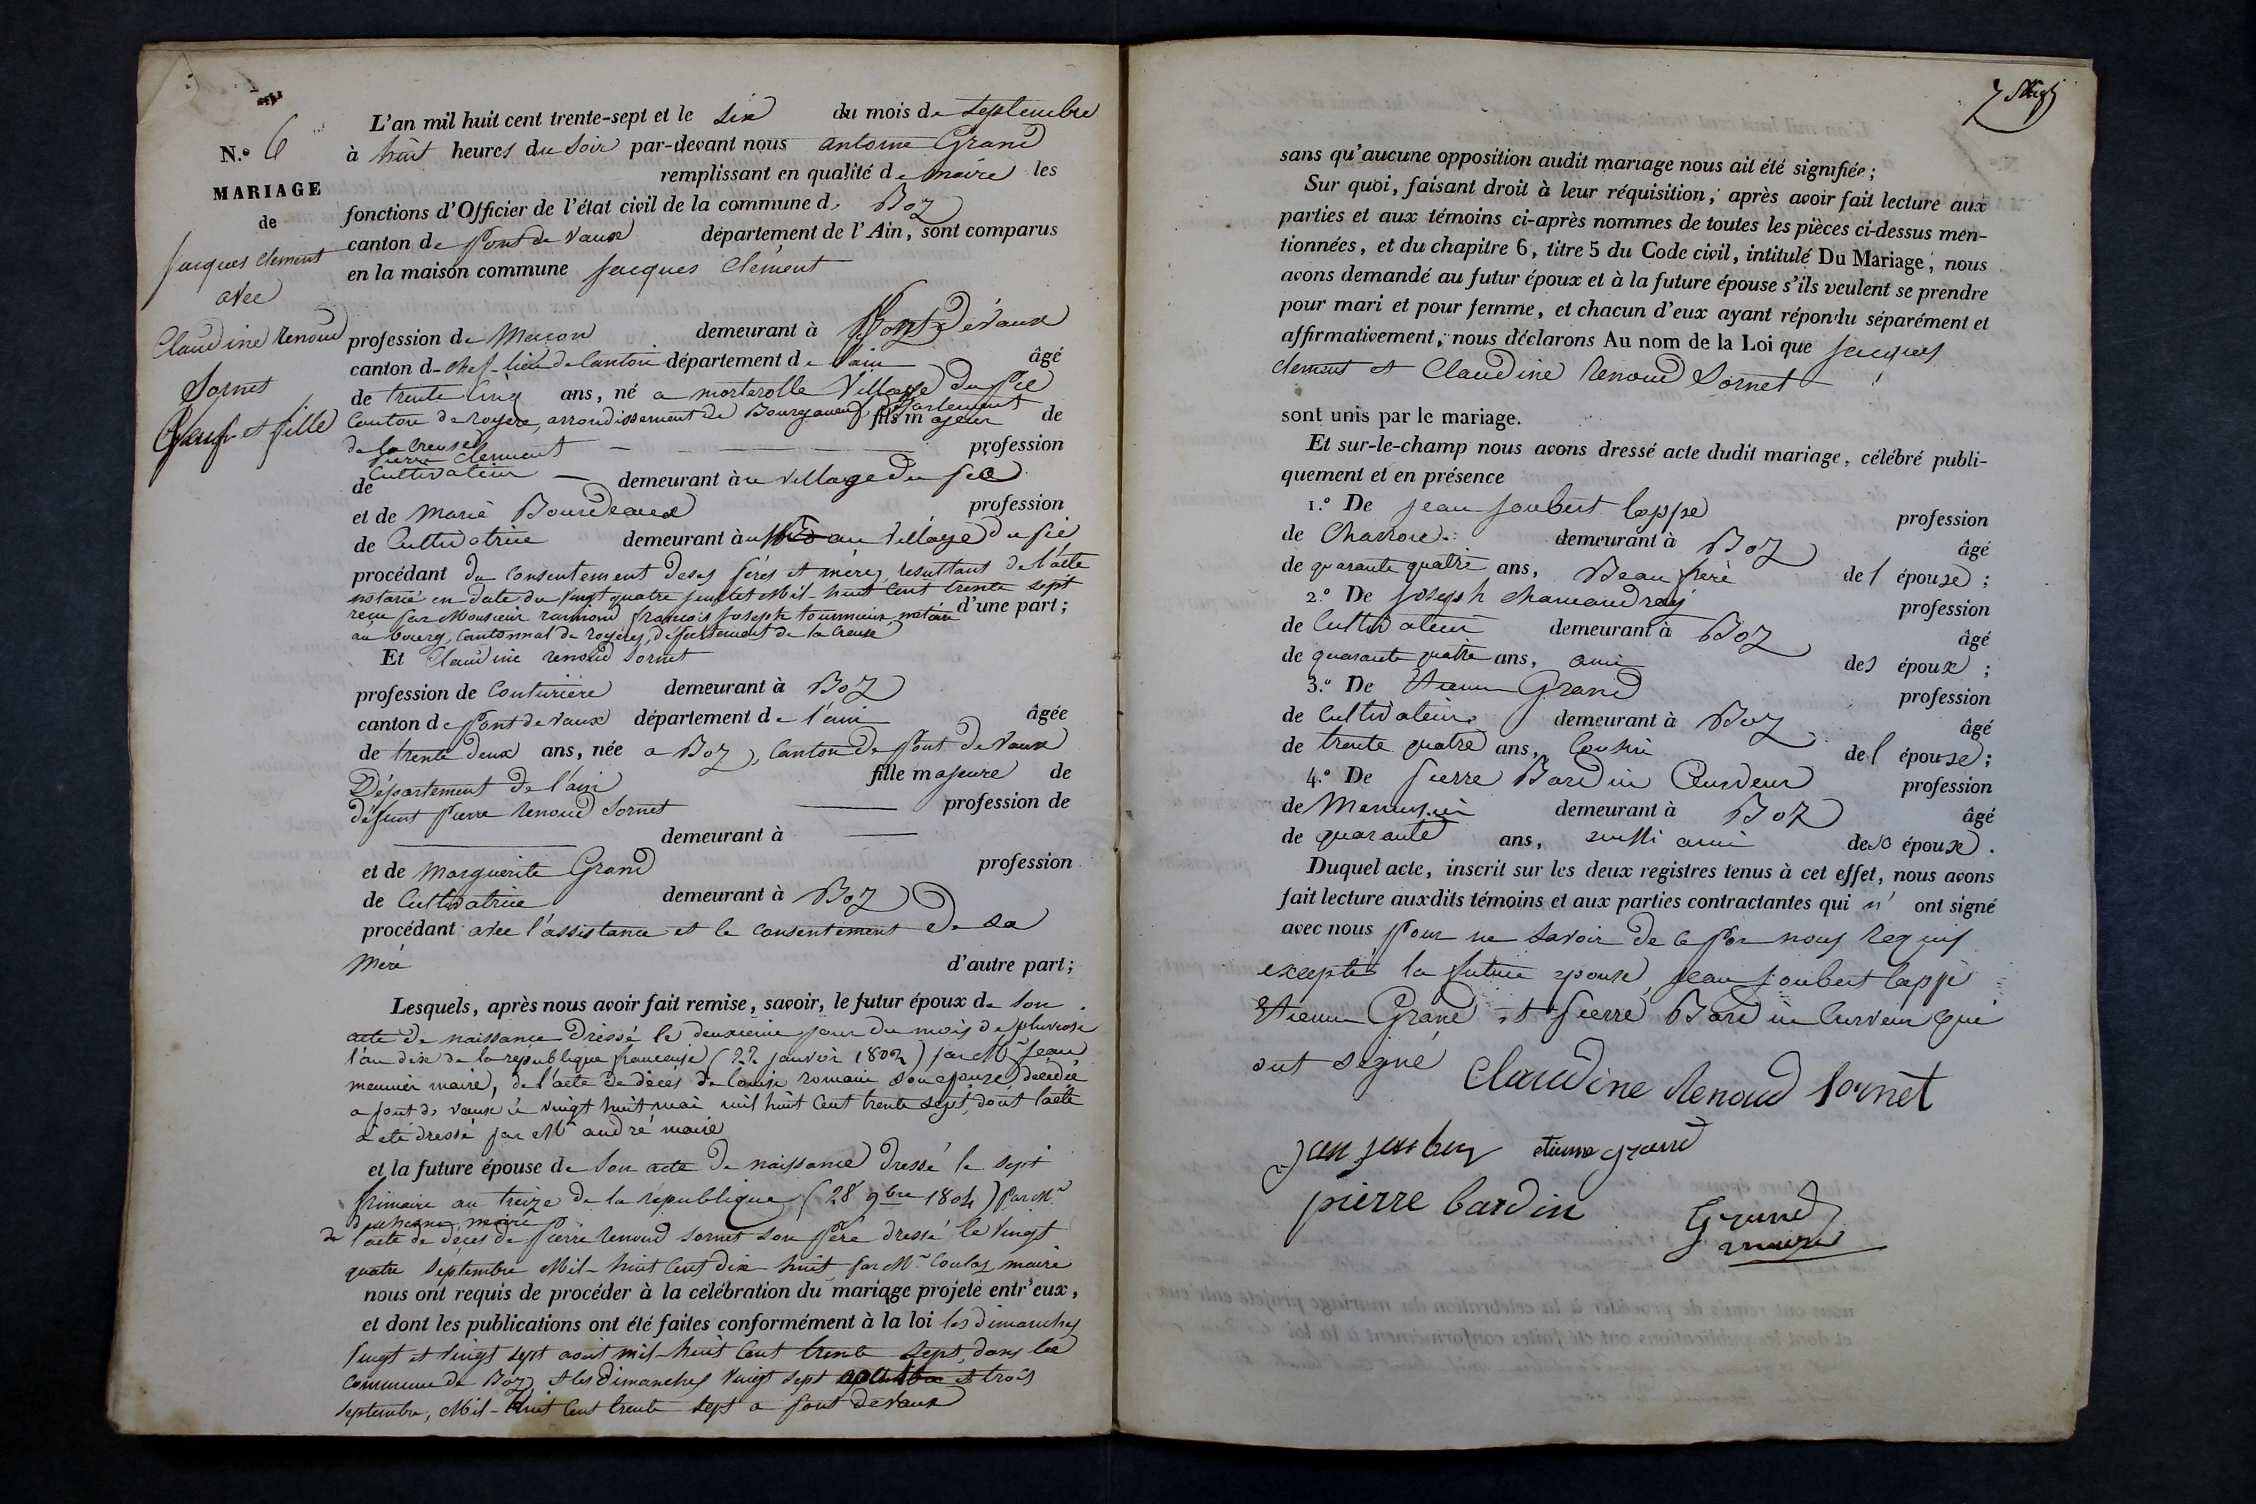 N.o 6
MARIAGE
de
Jacques Clement
avec
Claudine Renoud
Sornet
Veuf et fille
L'an mil huit cent trente-sept et le six du mois de septembre
à huit heures du soir par-devant nous antoine Grand
remplissant en qualité de maire les
fonctions d'Officier de l'état civil de la commune d. Boz
canton de Pont de Vaux département de l'Ain, sont comparus
en la maison commune Jacques Clément
profession de Macon demeurant à Pont de Vaux
canton d- chef-lieu de Canton département de l'ain âgé
de trente cinq ans, né a morterolle Village du fié
Canton de royere, arrondissement de Bourganeuf, département fils majeur de
de la Creuse
pierre Clement profession
de Cultivateur demeurant au village du fié
et de Marie Bourdeaux profession
de Cultivatrice demeurant au village du fié
procédant du consentement de ses pères et mère, resultant de l'acte
notarié en date du vingt quatre juillet Mil-huit Cent trente sept
reçu par Monsieur raimond françois Joseph tournieux notaire d'une part;
au bourg, Cantonnal de royere, Département de la Creuse
Et Claudine renoud Sornet
profession de Couturière demeurant à Boz
canton de Pont de Vaux département de l'ain âgée
de trente deux ans, née a Boz, Canton de Pont de Vaux
Département de l'ain fille majeure de
défunt Pierre Renoud Sornet profession de
demeurant à
et de Marguerite Grand profession
de Cultivatrice demeurant à Boz
procédant avec l'assistance et le consentement de sa
Mère d'autre part;
Lesquels, après nous avoir fait remise, savoir, le futur époux de son
acte de naissance dressé le deuxieme jour du mois de pluviose
l'an dix de la république francaise (22 janvier 1802) par Mr Jean
meunier maire, de l'acte de décès de louise romain son epouse, décédée
a pont de vaux le vingt huit mai mil huit Cent trente sept, dont l'acte
a été dressé par Mr andré maire
et la future épouse de son acte de naissance dressé le sept
frimaire an treize de la république (28 9bre 1804) par Mr
maire
de l'acte de décès de pierre renoud sornet son père dressé le vingt
quatre Septembre Mil-huit Cent dix-huit par Mr Coulas maire
nous ont requis de procéder à la célébration du mariage projeté entr'eux,
et dont les publications ont été faites conformément à la loi les dimanches
vingt et vingt sept août mil-huit Cent trente sept, dans la
commune de Boz et les Dimanches vingt sept et trois
septembre, Mil-huit Cent trente sept a pont de vaux
7
sans qu'aucune opposition audit mariage nous ait été signifiée;
Sur quoi, faisant droit à leur réquisition, après avoir fait lecture aux
parties et aux témoins ci-après nommes de toutes les pièces ci-dessus men-
tionnées, et du chapitre 6, titre 5 du Code civil, intitulé Du Mariage, nous
avons demandé au futur époux et à la future épouse s'ils veulent se prendre
pour mari et pour femme, et chacun d'eux ayant répondu séparément et
affirmativement, nous déclarons Au nom de la Loi que Jacques
clement et Claudine Renoud Sornet
sont unis par le mariage.
Et sur-le-champ nous avons dressé acte dudit mariage, célébré publi-
quement et en présence
1.o De Jean Joubert lappe profession
de Charron demeurant à Boz âgé
de quarante quatre ans, Beau frère de l épouse;
2.o De Joseph profession
de Cultivateur demeurant à Boz âgé
de quarante quatre ans, ami des époux;
3.o De Etienne Grand profession
de Cultivateur demeurant à Boz âgé
de trente quatre ans, Cousin de l épouse;
4.o De pierre Bardin Curveur profession
de Menuisier demeurant à Boz âgé
de quarante ans, aussi ami des époux.
Duquel acte, inscrit sur les deux registres tenus à cet effet, nous avons
fait lecture auxdits témoins et aux parties contractantes qui n' ont signé
avec nous pour ne savoir de ce par nous requis
excepté la future epouse, Jean Joubert lappe
Etienne Grand et pierre Bardin Curveur qui
ont signé
Claudine Renoud Sornet
etienne grand
pierre bardin
Grand
maire